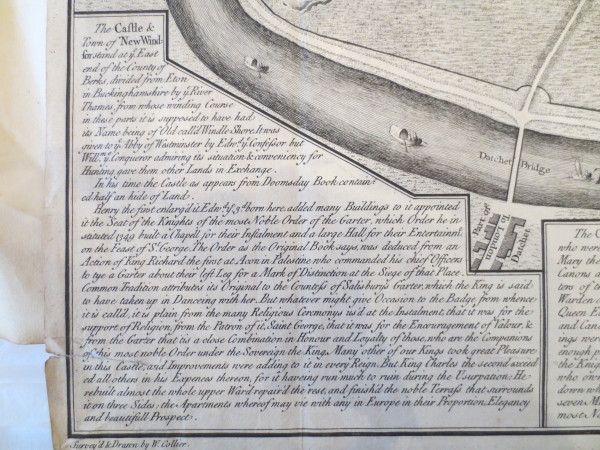 The Castle &
Town of New Wind-
sor stand at yͤ. East
end of the County of
Berks, divided from Eton
in Buckinghamshire by yͤ. River
Thames from whose winding Course
in these parts it is supposed to have had
its Name being of Old call'd Windle Shore. It was
given to yͤ. Abby of Westminster by Edwᵈ. yͤ. Confessor but
Willᵐ. yͤ. Conqueror admiring its situation & conveniency for
Hunting gave them other Lands in Exchange.
In his time the Castle as appears from Doomsday Book contain-
ed half an hide of Land.
Henry the first enlarg'd it. Edwᵈ. yͤ. 3ᵈ. born here, added many Buildings to it appointed
it the Seat of the Knights of the most Noble Order of the Garter, which Order he in-
stituted 1349 built a Chapell for their Instalment and a large Hall for their Entertainmt.
on the Feast of Sᵗ. George. The Order as the Original Book says, was deduced from an
Action of King Richard the first at Acon in Palestine, who commanded his chief Officers
to tye a Garter about their left Leg for a Mark of Distinction at the Siege of that Place.
Common Tradition attributes its Original to the Countess of Salisbury's Garter, which the King is said
to have taken up in Danceing with her. But whatever might give Occasion to the Badge from whence
it is call'd, it is plain from the many Religious Ceremonys us'd at the Instalment, that it was for the
support of Religion, from the Patron of it, Saint George, that it was for the Encouragement of Valour, &
from the Garter that tis a close Combination in Honour and Loyalty of those, who are the Companions
of this most noble Order under the Sovereign the King. Many other of our Kings took great Pleasure
in this Castle, and Improvements were adding to it in every Reign. But King Charles the second exceed
ed all others in his Expences thereon, for it haveing run much to ruin during the Usurpation: He
rebuilt almost the whole upper Ward repair'd the rest, and finish'd the noble Terrass that surrounds
it on three Sides: the Apartments whereof may vie with any in Europe in their Proportion, Elegancy
and beautifull Prospect.
Datchet Bridge
Road to
to London
Datchet
The C
who were
Mary th
Canons a
ters of t
Warden o
Queen E
and Cano
ings were
enough
the King
who on
drew
seven M
most No
Survey'd & Drawn by W. Collier.